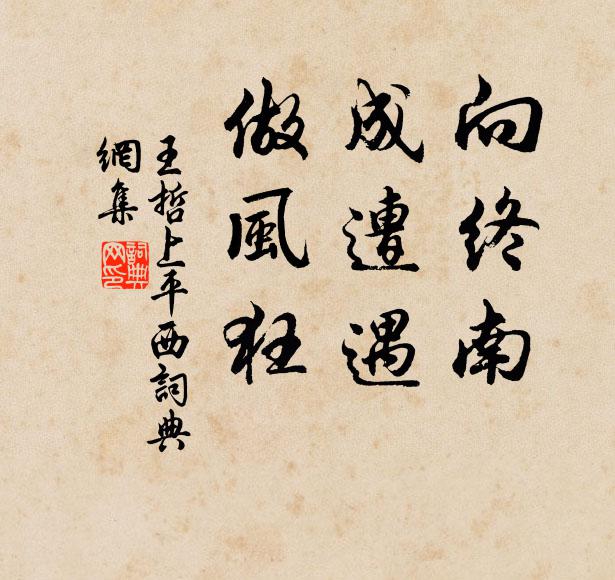 向終南
成遭遇
做風狂
王哲上平西詞典
網集
詞典
网印